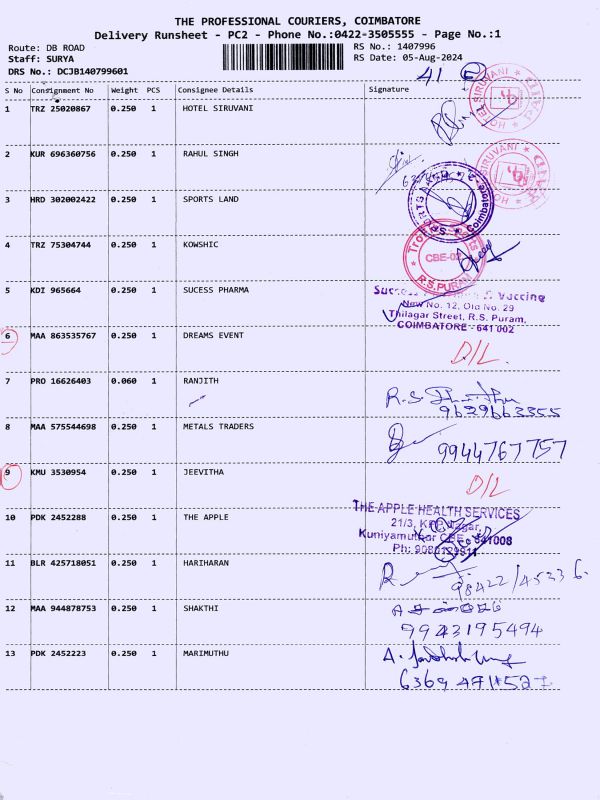 THE PROFESSIONAL COURIERS, COIMBATORE
Delivery Runsheet - PC2 - Phone No.:0422-3505555 - Page No.:1
Route: DB ROAD RS No.: 1407996
Staff: SURYA RS Date: 05-Aug-2024
DRS No.: DCJB140799601
41
S No Consignment No Weight PCS Consignee Details Signature
1 TRZ 25020867 0.250 1 HOTEL SIRUVANI
HOTEL SIRUVANI
2 KUR 696360756 0.250 1 RAHUL SINGH
SIRUVANI
3 HRD 302002422 0.250 1 SPORTS LAND
Coimbatore
4 TRZ 75304744 0.250 1 KOWSHIC
CBE-02
R.S.PURAM
5 KDI 965664 0.250 1 SUCESS PHARMA
Vaccine
New No. 12, Old No. 29
Thilagar Street, R.S. Puram,
COIMBATORE - 641 002
6 MAA 863535767 0.250 1 DREAMS EVENT
D/L.
7 PRO 16626403 0.060 1 RANJITH
R.S.
9629663355
8 MAA 575544698 0.250 1 METALS TRADERS
9944767757
9 KMU 3530954 0.250 1 JEEVITHA
D/L
10 PDK 2452288 0.250 1 THE APPLE
THE APPLE HEALTH SERVICES
21/3,
Kuniyamuthur CBE - 641008
Ph:
11 BLR 425718051 0.250 1 HARIHARAN
98422/45336
12 MAA 944878753 0.250 1 SHAKTHI
9943195494
13 PDK 2452223 0.250 1 MARIMUTHU
A.
6369